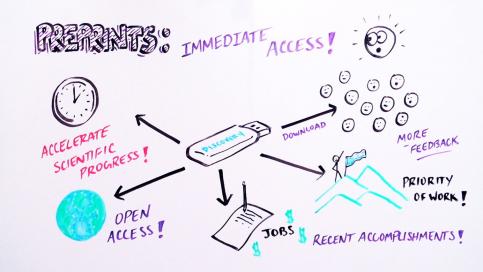 PREPRINTS: IMMEDIATE ACCESS!
DISCOVERY
DOWNLOAD
MORE
FEEDBACK
ACCELERATE
SCIENTIFIC
PROGRESS!
OPEN
ACCESS!
JOBS
$
$
$
PRIORITY
OF WORK!
RECENT ACCOMPLISHMENTS!